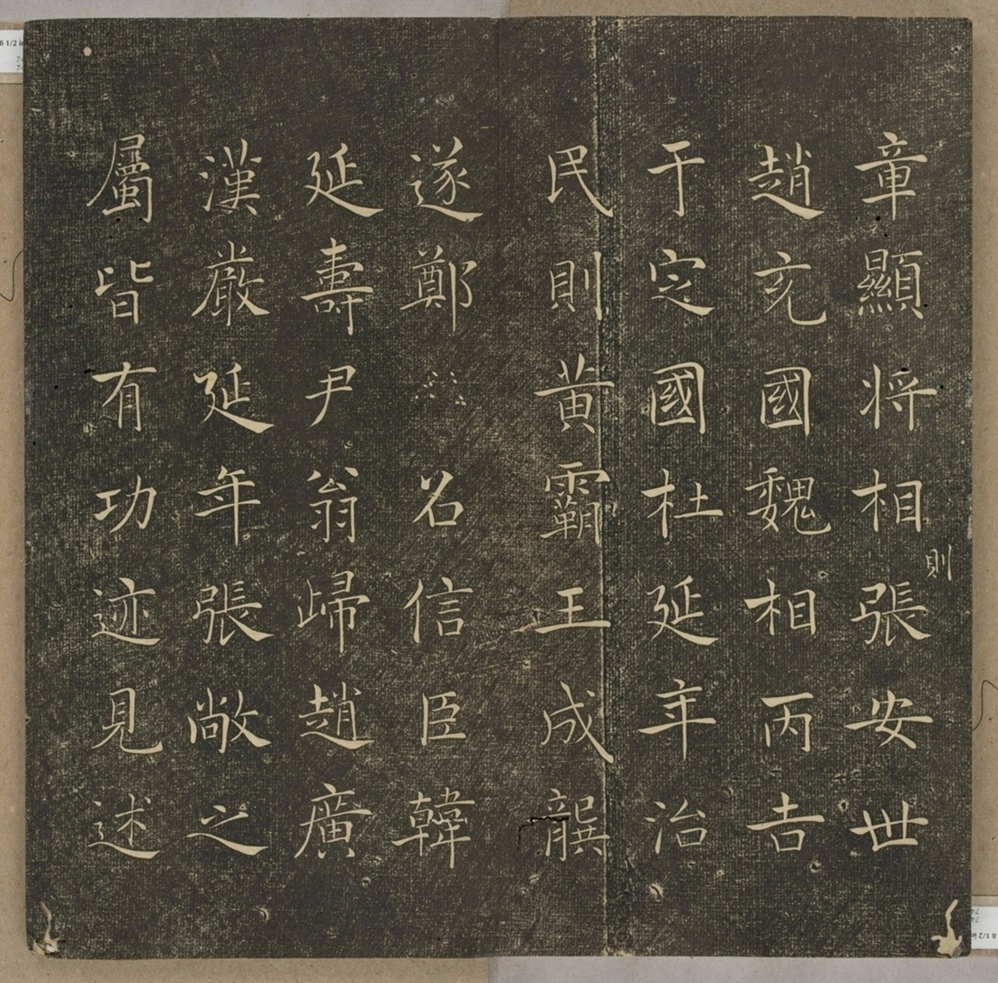 章顯將相張安世
則
趙充國魏相丙吉
于定國杜延年治
民則黃霸王成龔
遂鄭∴∴名信臣韓
延壽尹翁歸趙廣
漢嚴延年張敞之
屬皆有功迹見述